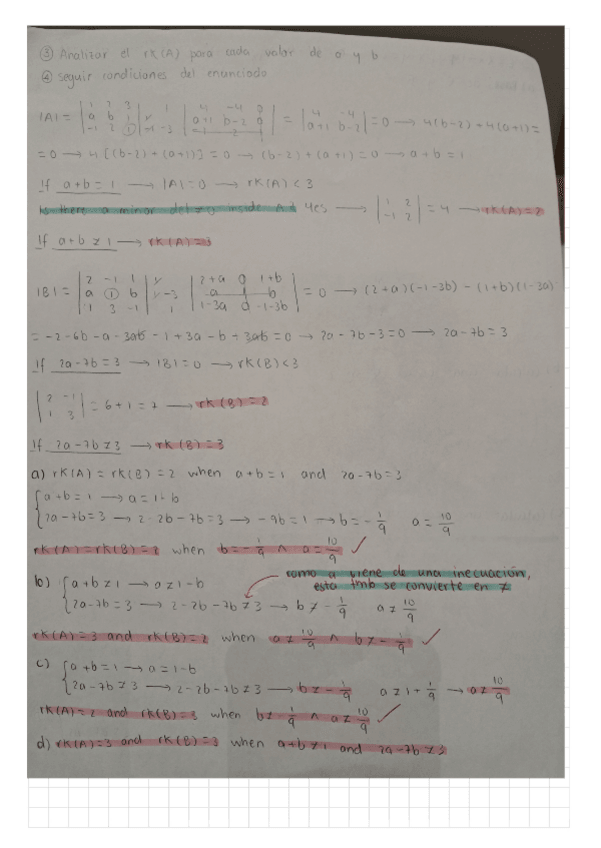 ③ Analizar el rk(A) para cada valor de a y b
④ seguir condiciones del enunciado
|A| = | 1 2 3 | a b 1 | -1 2 1 | = | 4 -4 0 | a+1 b-2 0 | = | 4 -4 | a+1 b-2 | = 0 → 4(b-2) + 4(a+1) =
= 0 → 4[(b-2) + (a+1)] = 0 → (b-2) + (a+1) = 0 → a+b = 1
If a+b = 1 → |A| = 0 → rk(A) < 3
Is there a minor det ≠ 0 inside A? Yes → | 1 2 | -1 2 | = 4 → rk(A) = 2
If a+b ≠ 1 → rk(A) = 3
|B| = | 2 -1 1 | a 1 b | 1 3 -1 | | 2+a 0 1+b | a 1 b | 1-3a 0 -1-3b | = 0 → (2+a)(-1-3b) - (1+b)(1-3a)
= -2 - 6b - a - 3ab - 1 + 3a - b + 3ab = 0 → 2a - 7b - 3 = 0 → 2a - 7b = 3
If 2a - 7b = 3 → |B| = 0 → rk(B) < 3
| 2 -1 | 1 3 | = 6 + 1 = 7 → rk(B) = 2
If 2a - 7b ≠ 3 → rk(B) = 3
a) rk(A) = rk(B) = 2 when a+b = 1 and 2a - 7b = 3
{ a+b = 1 → a = 1-b
2a - 7b = 3 → 2 - 2b - 7b = 3 → -9b = 1 → b = -1/9 a = 10/9
rk(A) = rk(B) = 2 when b = -1/9 ∧ a = 10/9 ✓
como a viene de una inecuación,
esta tmb se convierte en ≠
b) { a+b ≠ 1 → a ≠ 1-b
2a - 7b = 3 → 2 - 2b - 7b ≠ 3 → b ≠ -1/9 a ≠ 10/9
rk(A) = 3 and rk(B) = 2 when a ≠ 10/9 ∧ b ≠ -1/9 ✓
c) { a+b = 1 → a = 1-b
2a - 7b ≠ 3 → 2 - 2b - 7b ≠ 3 → b ≠ -1/9 a ≠ 1 + 1/9 → a ≠ 10/9
rk(A) = 2 and rk(B) = 3 when b ≠ -1/9 ∧ a ≠ 10/9 ✓
d) rk(A) = 3 and rk(B) = 3 when a+b ≠ 1 and 2a - 7b ≠ 3